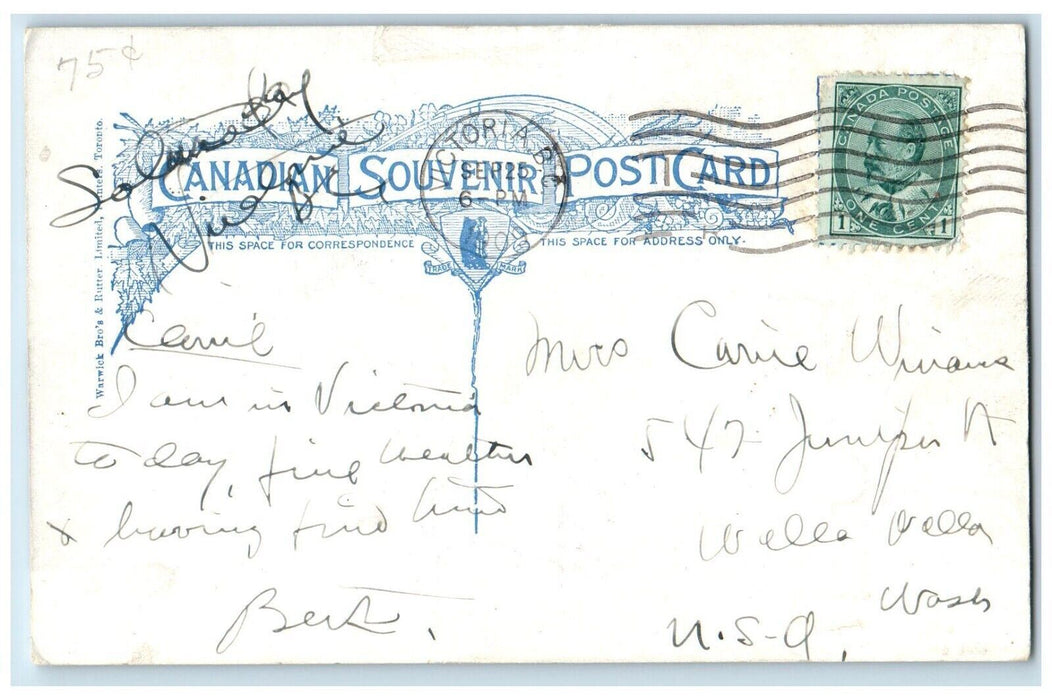 75¢
CANADIAN SOUVENIR POST CARD
THIS SPACE FOR CORRESPONDENCE
THIS SPACE FOR ADDRESS ONLY.
TRADE MARK
Warwick Bro's & Rutter, Limited, Printers, Toronto.
VICTORIA, B.C.
SEP 25
6 - PM
CANADA POSTAGE
1 ONE CENT 1
Carrie
I am in Victoria
to day, fine weather
& having fine time
Bert.
Mrs Carrie Winans
547 Juniper St
Walla Walla
Wash
U.S.A.